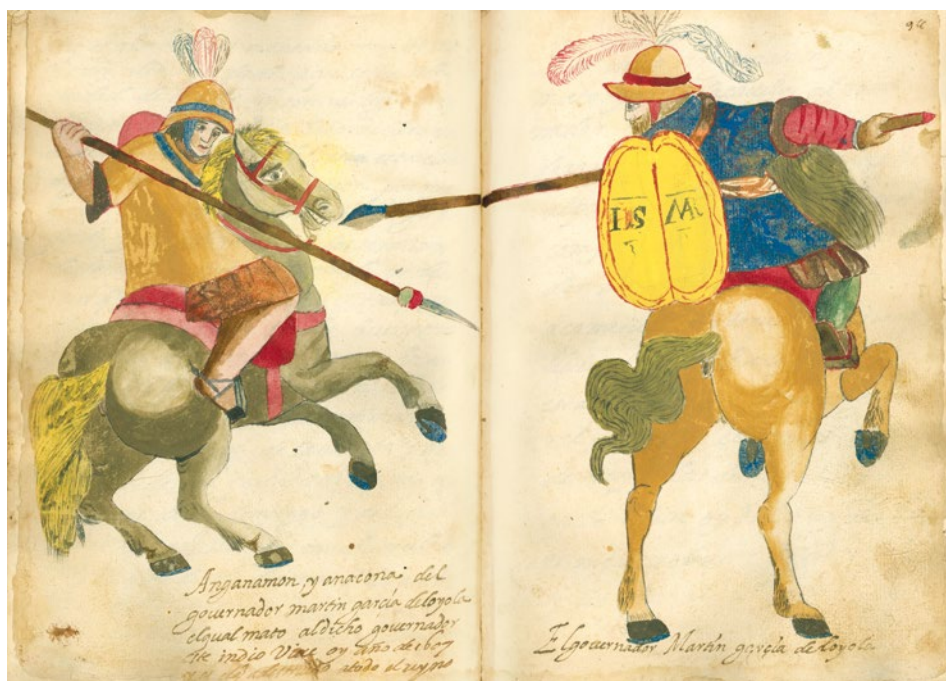 Anganamon, yanacona del
gouernador martin garcia deloyola
elqual mato aldicho gouernador
indio Viue oy año de
atodo el reyno
IS M
El gouernador Martin garçia de loyola